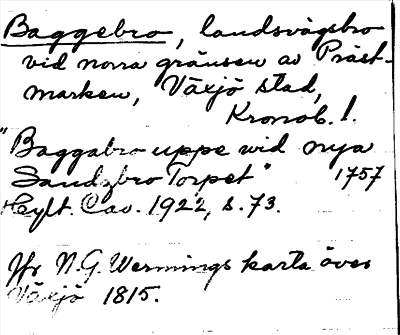 Baggebro, landsvägsbro
vid norra gränsen av Präst-
marken, Växjö stad,
Kronob. l.
"Baggabro uppe vid nya
Sandzbro Torpet" 1757
Hylt. Cav. 1922, s. 73.
Jfr N.G. Wermings karta över
Växjö 1815.